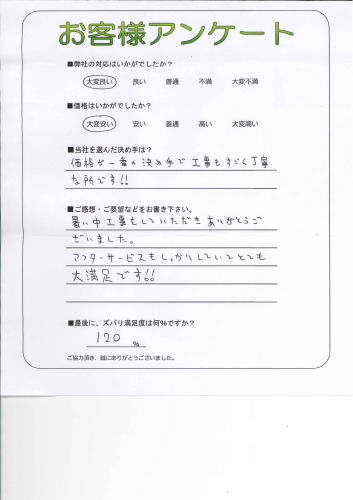 お客様アンケート
■弊社の対応はいかがでしたか？
大変良い 良い 普通 不満 大変不満
■価格はいかがでしたか？
大変安い 安い 普通 高い 大変高い
■当社を選んだ決め手は？
価格が一番の決め手で工事もすごく丁寧
な所です!!
■ご感想・ご要望などをお書き下さい。
暑い中工事もしていただきありがとうご
ざいました。
アフターサービスもしっかりしていてとても
大満足です!!
■最後に、ズバリ満足度は何%ですか？
120 %
ご協力頂き、誠にありがとうございました。